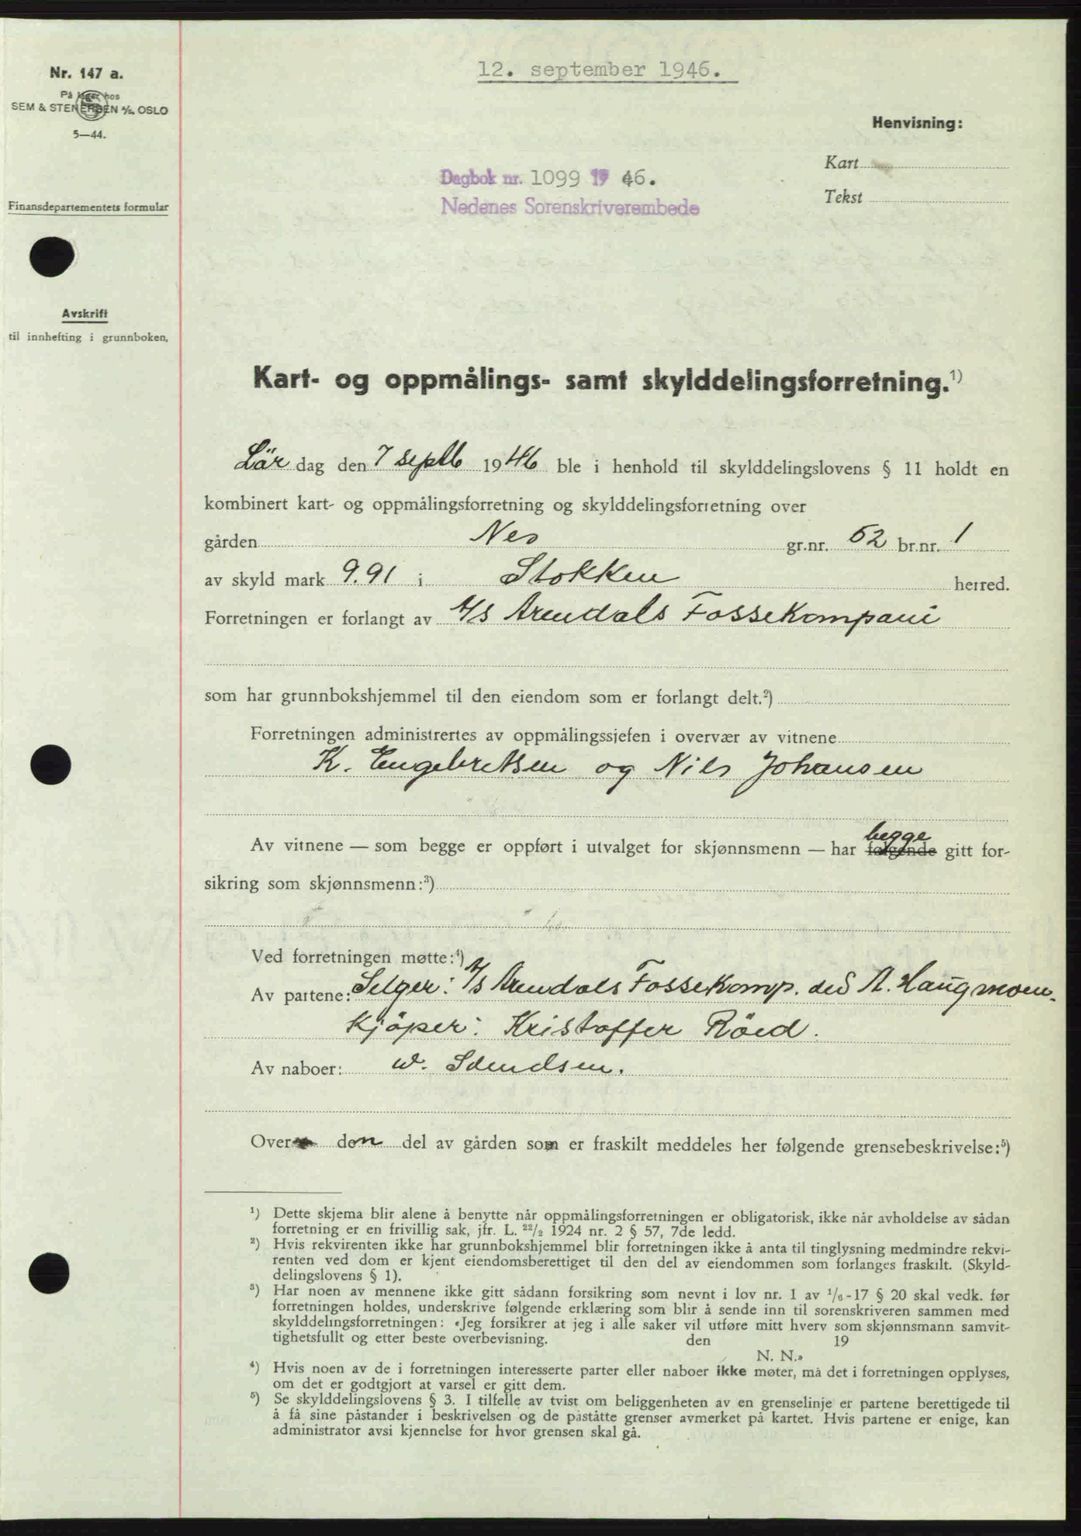 Nr. 147 a.
På lager hos
SEM & STENERSEN A/S. OSLO
5—44.
Finansdepartementets formular
Avskrift
til innhefting i grunnboken.
12. september 1946.
Henvisning:
Kart
Tekst
Dagbok nr. 1099 19 46.
Nedenes Sorenskriverembede
Kart- og oppmålings- samt skylddelingsforretning.¹)
Lör dag den 7 septb 1946 ble i henhold til skylddelingslovens § 11 holdt en
kombinert kart- og oppmålingsforretning og skylddelingsforretning over
gården Nes gr.nr. 52 br.nr. 1
av skyld mark 9.91 i Stokken herred.
Forretningen er forlangt av A/S Arendals Fossekompani
som har grunnbokshjemmel til den eiendom som er forlangt delt.²)
Forretningen administrertes av oppmålingssjefen i overvær av vitnene
K. Engebretsen og Nils Johansen
begge
Av vitnene — som begge er oppført i utvalget for skjønnsmenn — har følgende gitt for-
sikring som skjønnsmenn:³)
Ved forretningen møtte:⁴)
Av partene: Selger: A/S Arendals Fossekomp. ved A. Haugmoen.
Kjöper: Kristoffer Röed.
Av naboer: W. Svendsen.
Over den del av gården som er fraskilt meddeles her følgende grensebeskrivelse:⁵)
¹) Dette skjema blir alene å benytte når oppmålingsforretningen er obligatorisk, ikke når avholdelse av sådan
forretning er en frivillig sak, jfr. L. 22/2 1924 nr. 2 § 57, 7de ledd.
²) Hvis rekvirenten ikke har grunnbokshjemmel blir forretningen ikke å anta til tinglysning medmindre rekvi-
renten ved dom er kjent eiendomsberettiget til den del av eiendommen som forlanges fraskilt. (Skyld-
delingslovens § 1).
³) Har noen av mennene ikke gitt sådann forsikring som nevnt i lov nr. 1 av 1/6-17 § 20 skal vedk. før
forretningen holdes, underskrive følgende erklæring som blir å sende inn til sorenskriveren sammen med
skylddelingsforretningen: «Jeg forsikrer at jeg i alle saker vil utføre mitt hverv som skjønnsmann samvit-
tighetsfullt og etter beste overbevisning. den 19
N. N.»
⁴) Hvis noen av de i forretningen interesserte parter eller naboer ikke møter, må det i forretningen opplyses,
om det er godtgjort at varsel er gitt dem.
⁵) Se skylddelingslovens § 3. I tilfelle av tvist om beliggenheten av en grenselinje er partene berettigede til
å få sine påstander i beskrivelsen og de påståtte grenser avmerket på kartet. Hvis partene er enige, kan
administrator avsi kjennelse for hvor grensen skal gå.